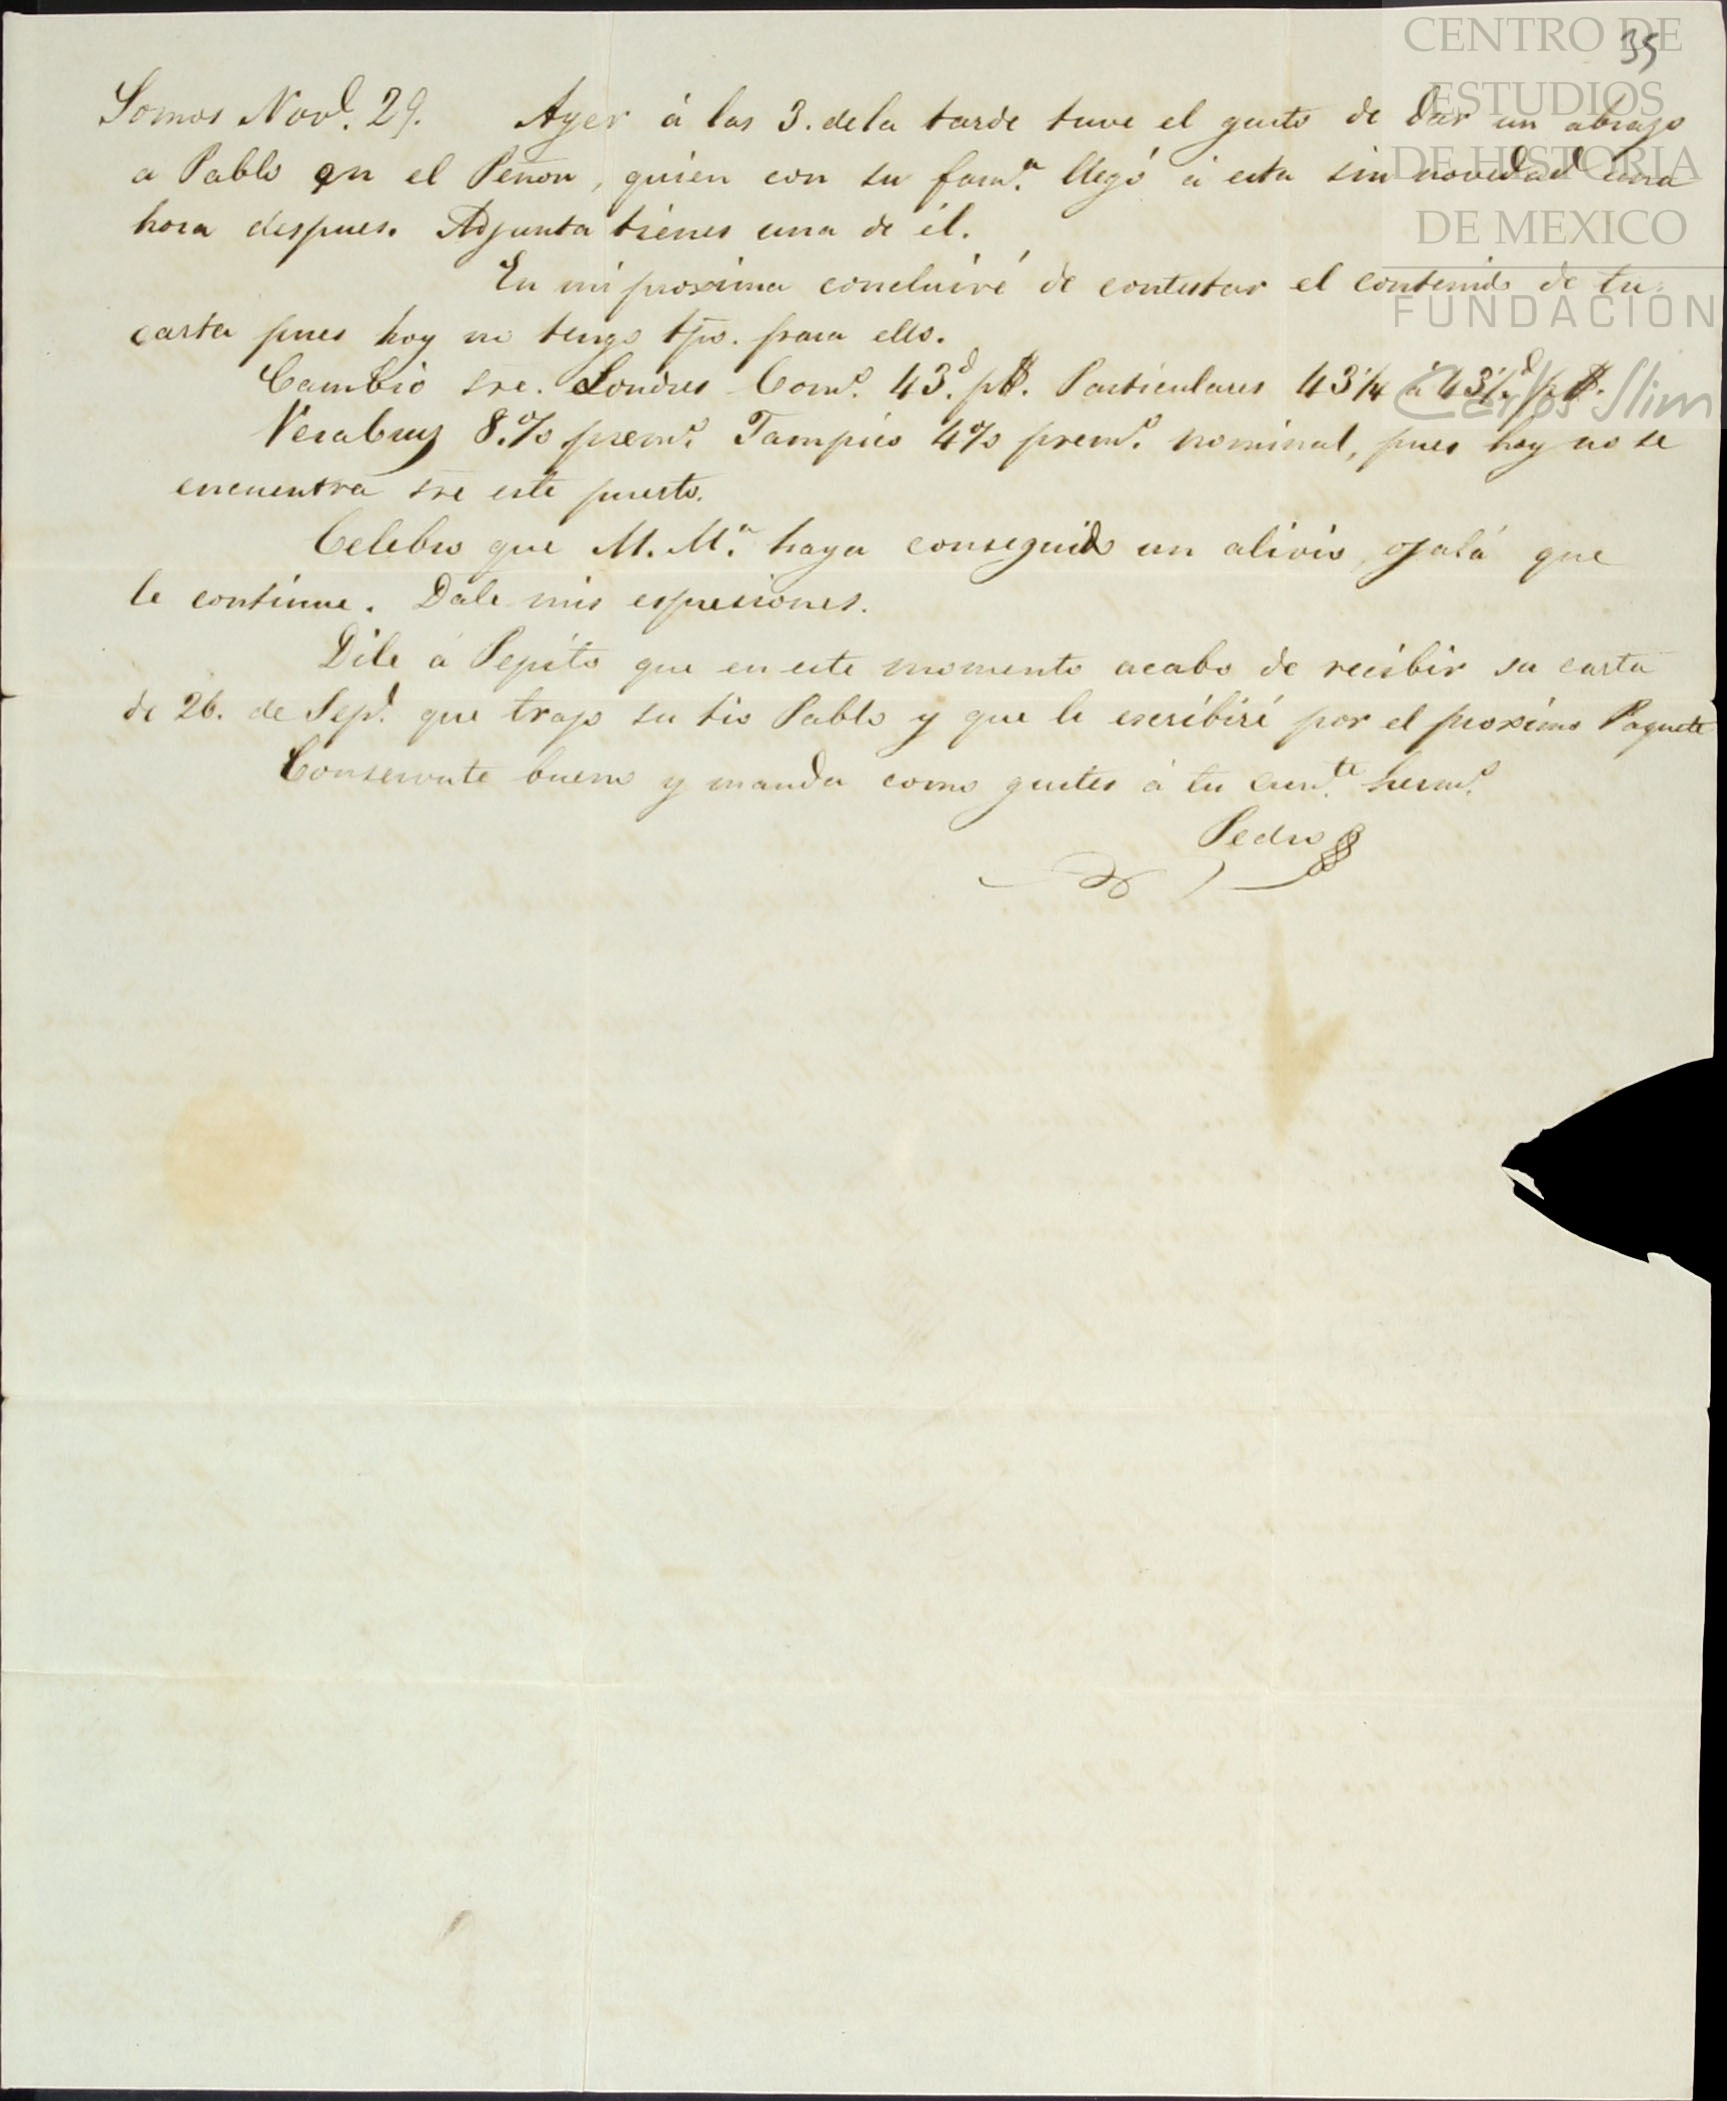 35
CENTRO DE
ESTUDIOS
DE HISTORIA
DE MEXICO
FUNDACION
Carlos Slim
Somos Novᵉ. 29. Ayer á las 3. de la tarde tuve el gusto de dar un abrazo
a Pablo en el Peñon, quien con su famᵃ. llegó á esta sin novedad una
hora despues. Adjunta tienes una de él.
En mi proxima concluiré de contestar el contenido de tu
carta pues hoy no tengo tpo. para ello.
Cambio sre. Londres Comᵒ. 43ᵈ. p$. Particulares 43¼ á 43½ᵈ p$.
VeraCruz 8.% premᵒ. Tampico 4% premᵒ. nominal, pues hoy no se
encuentra sre este puerto.
Celebro que M. Mᵃ. haya conseguido un alivio, ojalá que
le continue. Dale mis espresiones.
Dile á Pepito que en este momento acabo de recibir su carta
de 26. de Sepᵉ. que trajo su tio Pablo y que le escribiré por el proximo Paquete
Conservate bueno y manda como gustes á tu hermᵒ.
Pedro